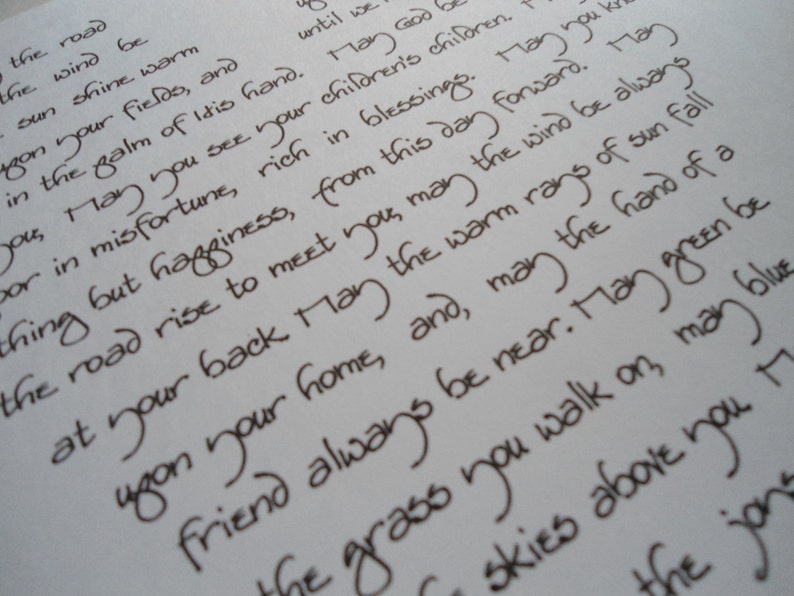 the road
until we
the wind be
sun shine warm May God be
upon your fields, and
in the palm of His hand.
you, May you see your children's children.
in misfortune, rich in blessings. May you know
thing but happiness, from this day forward. May
the road rise to meet you, may the wind be always
at your back. May the warm rays of sun fall
upon your home, and, may the hand of a
friend always be near. May green be
the grass you walk on, may blue
skies above you
the joys